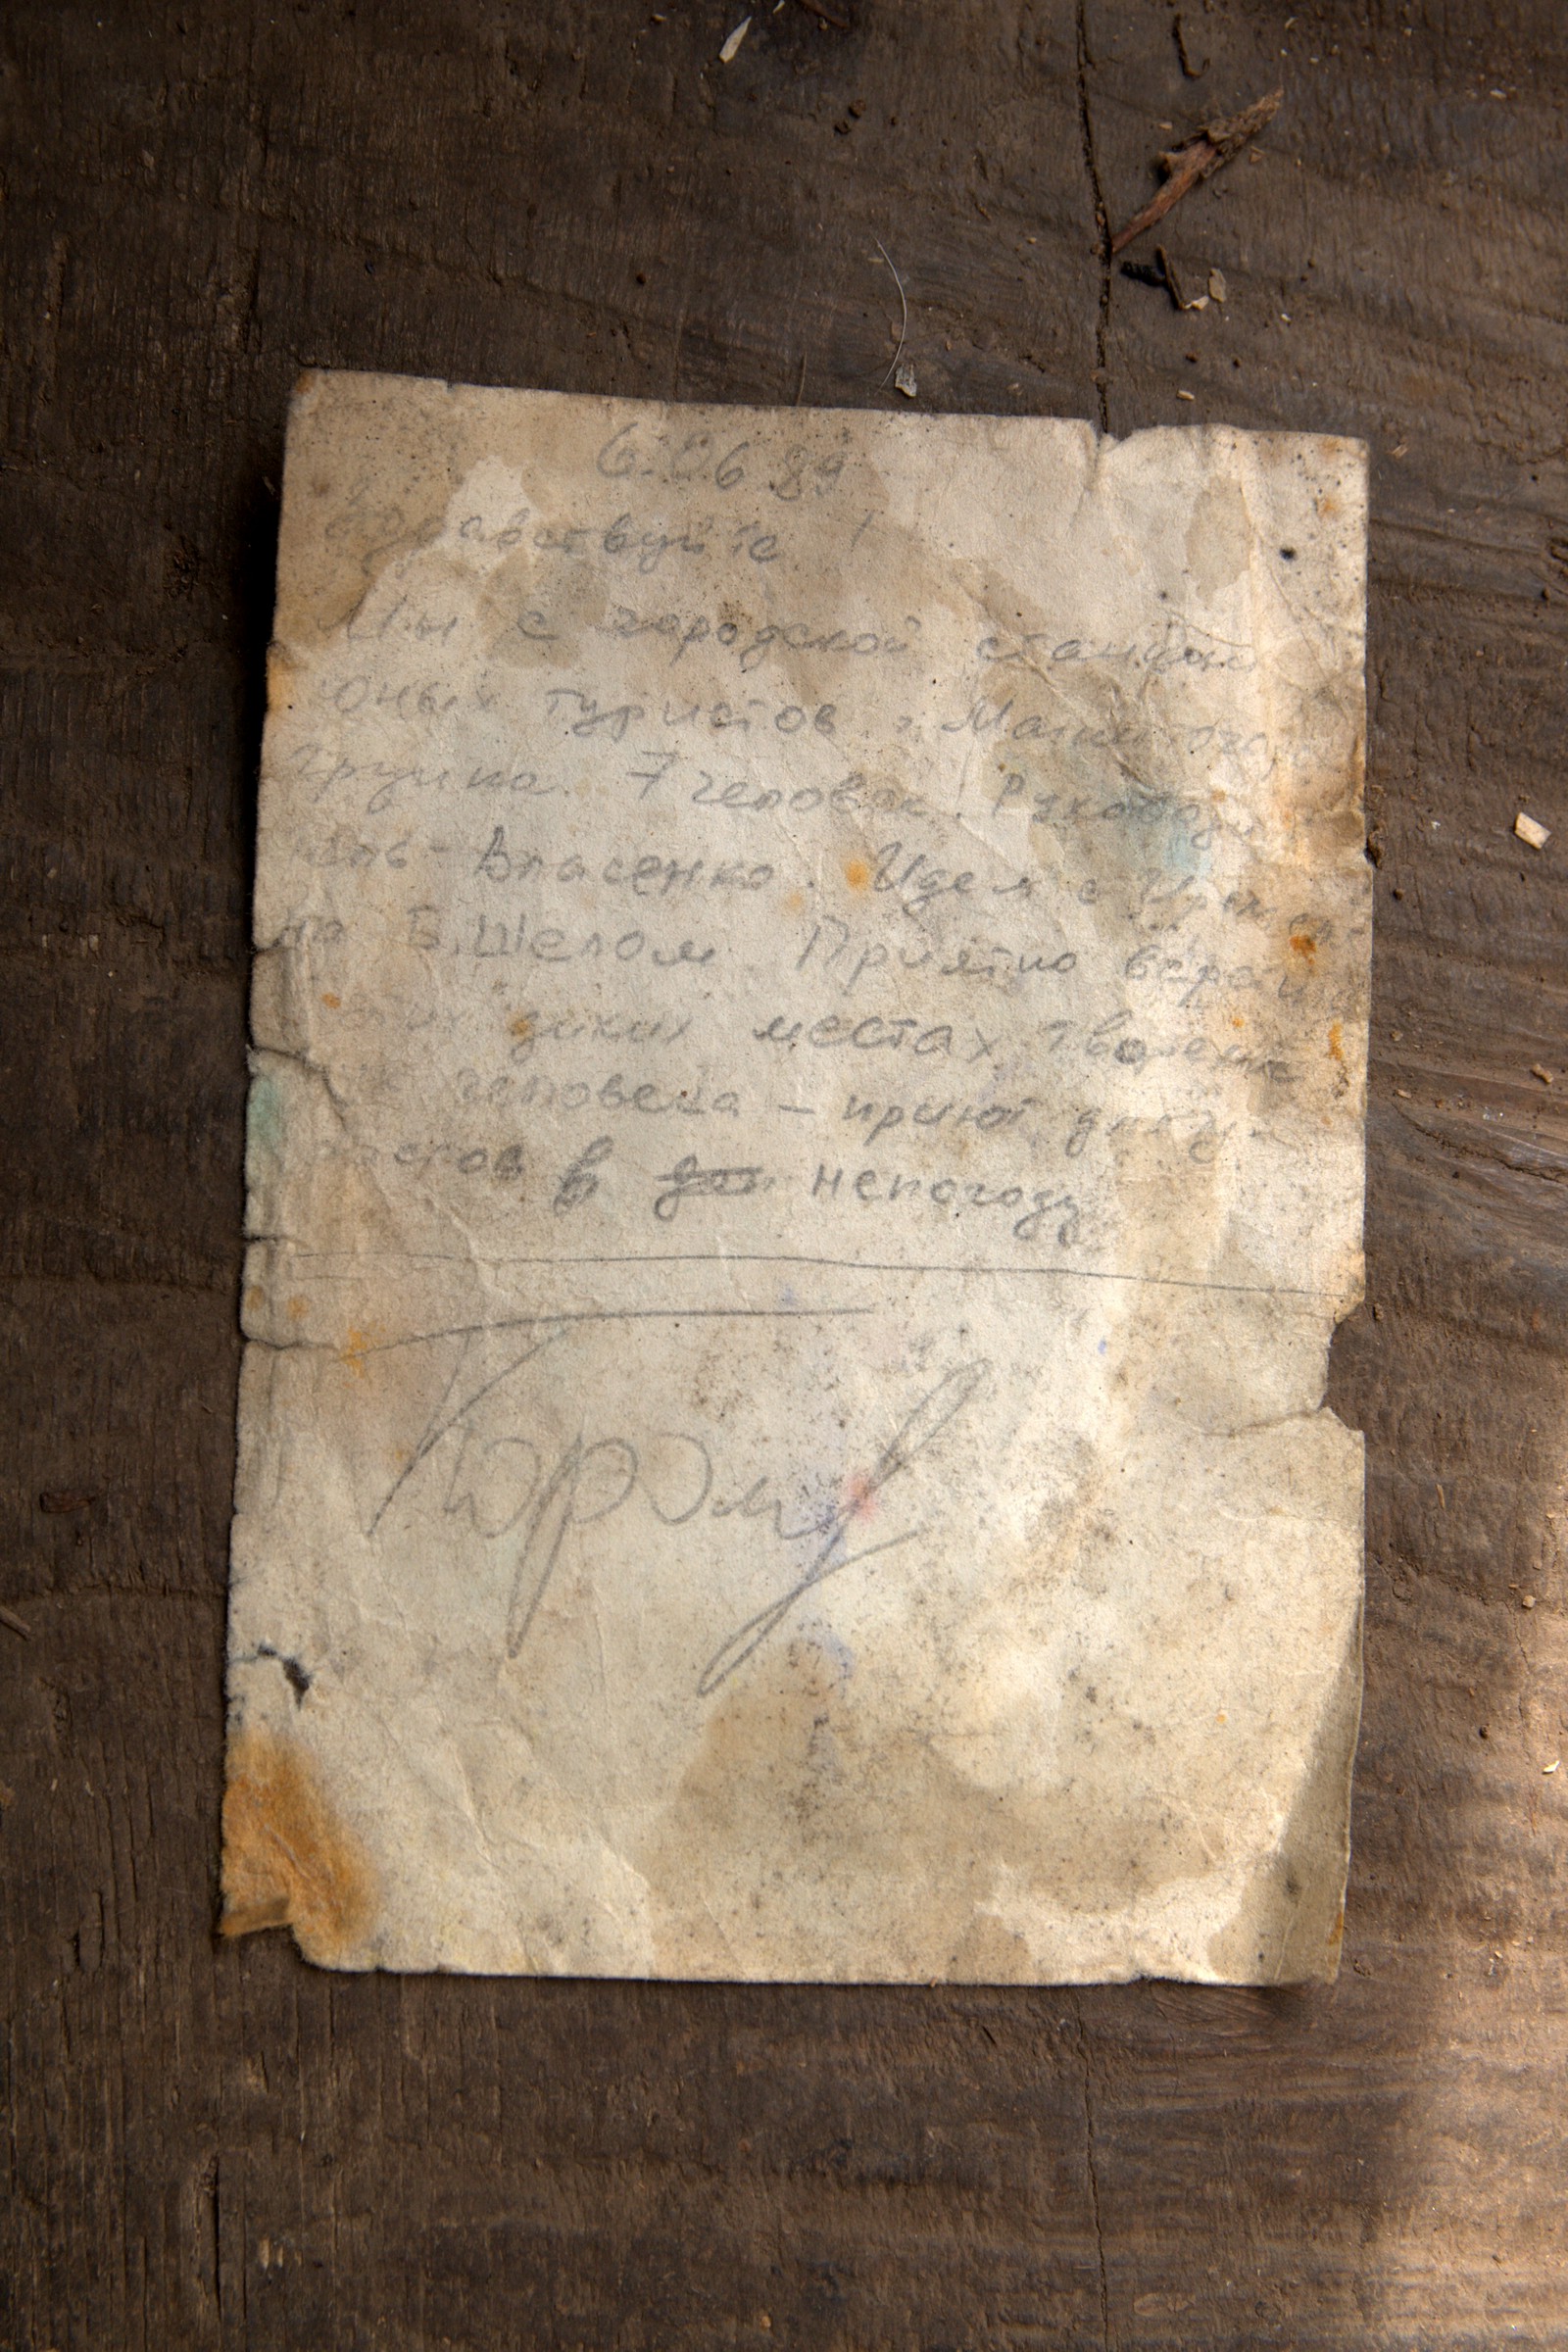 6.06 89
Здравствуйте !
Мы с городской станции
юных туристов г. Магнитого
Группа 7 человек. Руководи
тель - Власенко. Идем с
по Б.Шелом. Приятно
диких местах творение
человека – приют для
в непогоду